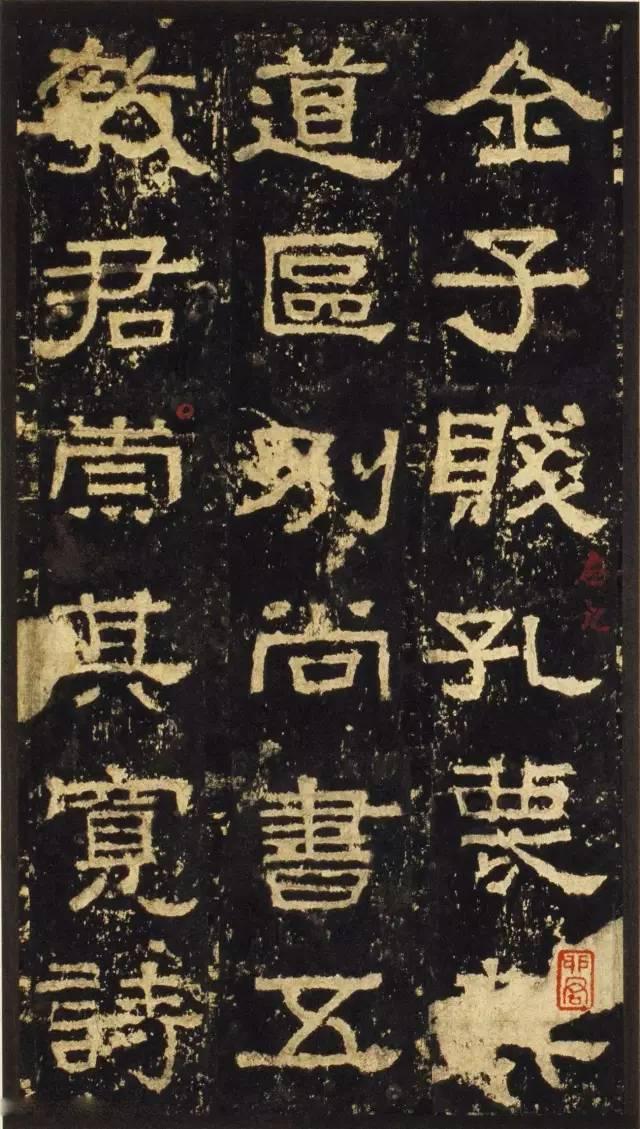 全子賤孔蔑
道區別尚書五
教君崇其寬詩